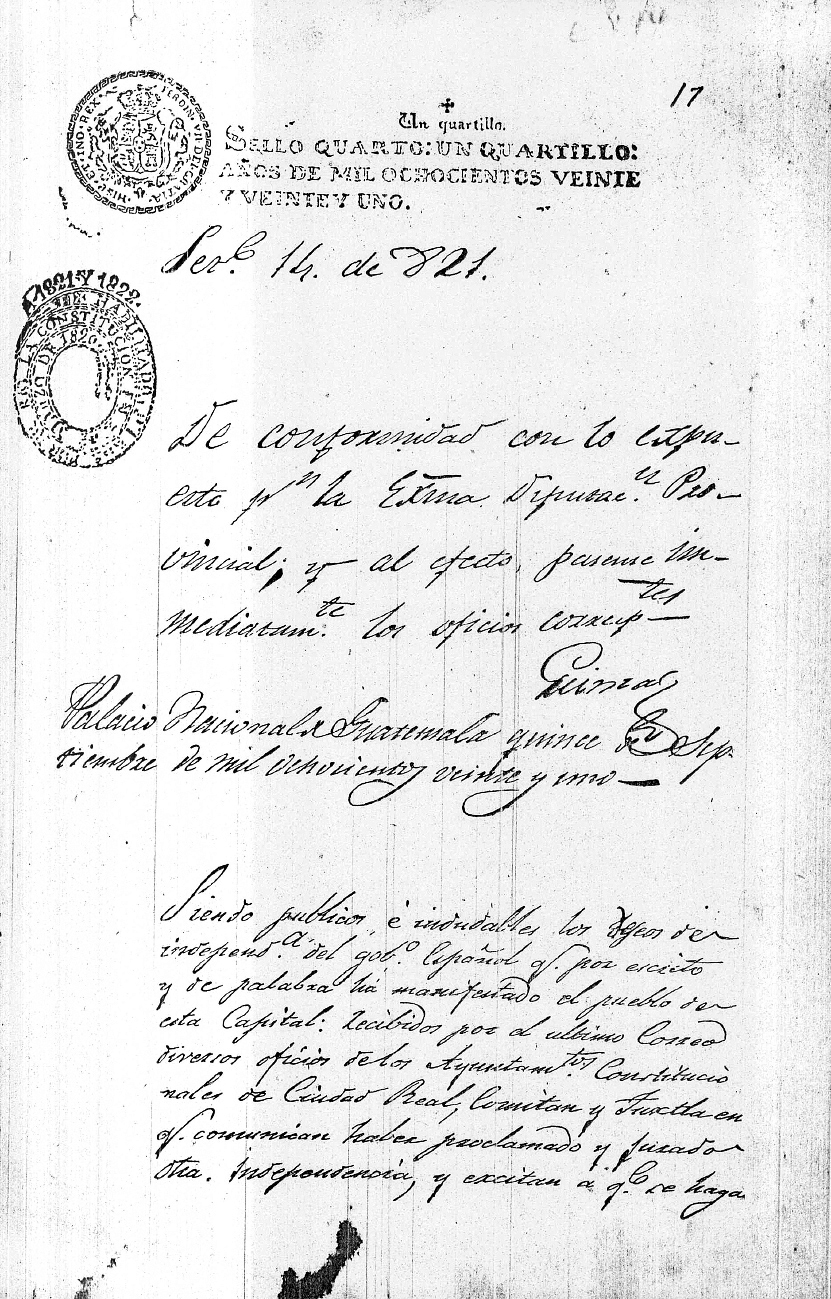 17
HISP. ET IND. REX FERDIN. VII DEI GRATIA
Un quartillo.
SELLO QUARTO: UN QUARTILLO:
AÑOS DE MIL OCHOCIENTOS VEINTE
Y VEINTE Y UNO.
Sepe. 14. de 821.
1821 Y 1822.
HABILITADA
LA CONSTITUCION EN
DE 1820.
De conformidad con lo expu-
esto pr. la Exma. Diputacn. Pro-
vincial; y al efecto, pasense im-
mediatamte. los oficios corresptes
Gainza
Palacio Nacional de Guatemala quince de Sep-
tiembre de mil ochocientos veinte y uno
Siendo publicos, é indudables los deseos de
independa. del gobo. Español q. por escrito
y de palabra há manifestado el pueblo de
esta Capital: recibidos por el ultimo Correo
diversos oficios de los Ayuntamtos. Constitucio
nales de Ciudad Real, Comitan y Tuxtla en
q. comunican haber proclamado y jurado
dha. independencia, y excitan a qe. se haga